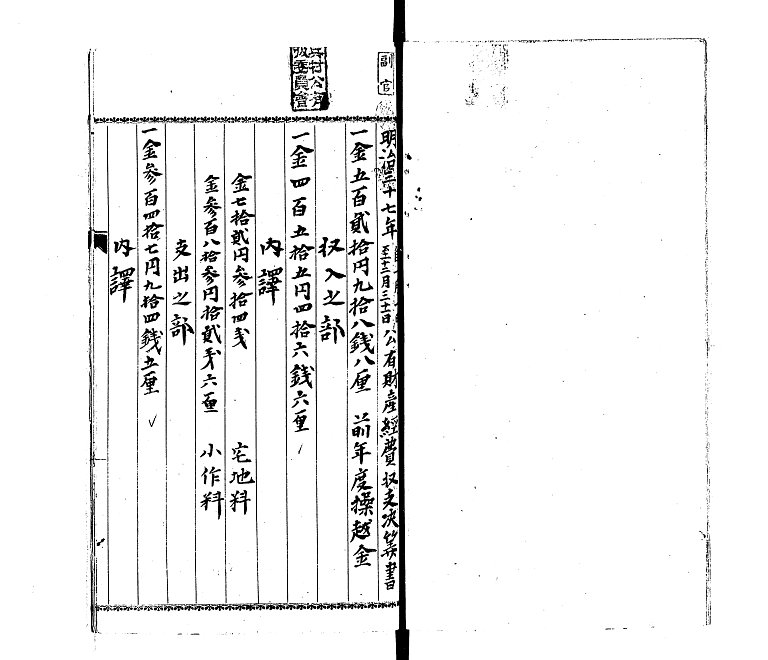 副官
明治二十七年 至十二月三十一日 公有財産経費収支決算書
一金五百貳拾円九拾八銭八厘 前年度操越金
収入之部
一金四百五拾五円四拾六銭六厘
内譯
金七拾貳円参拾四戔 宅地料
金参百八拾参円拾貳戔六厘 小作料
支出之部
一金参百四拾七円九拾四銭五厘
内譯